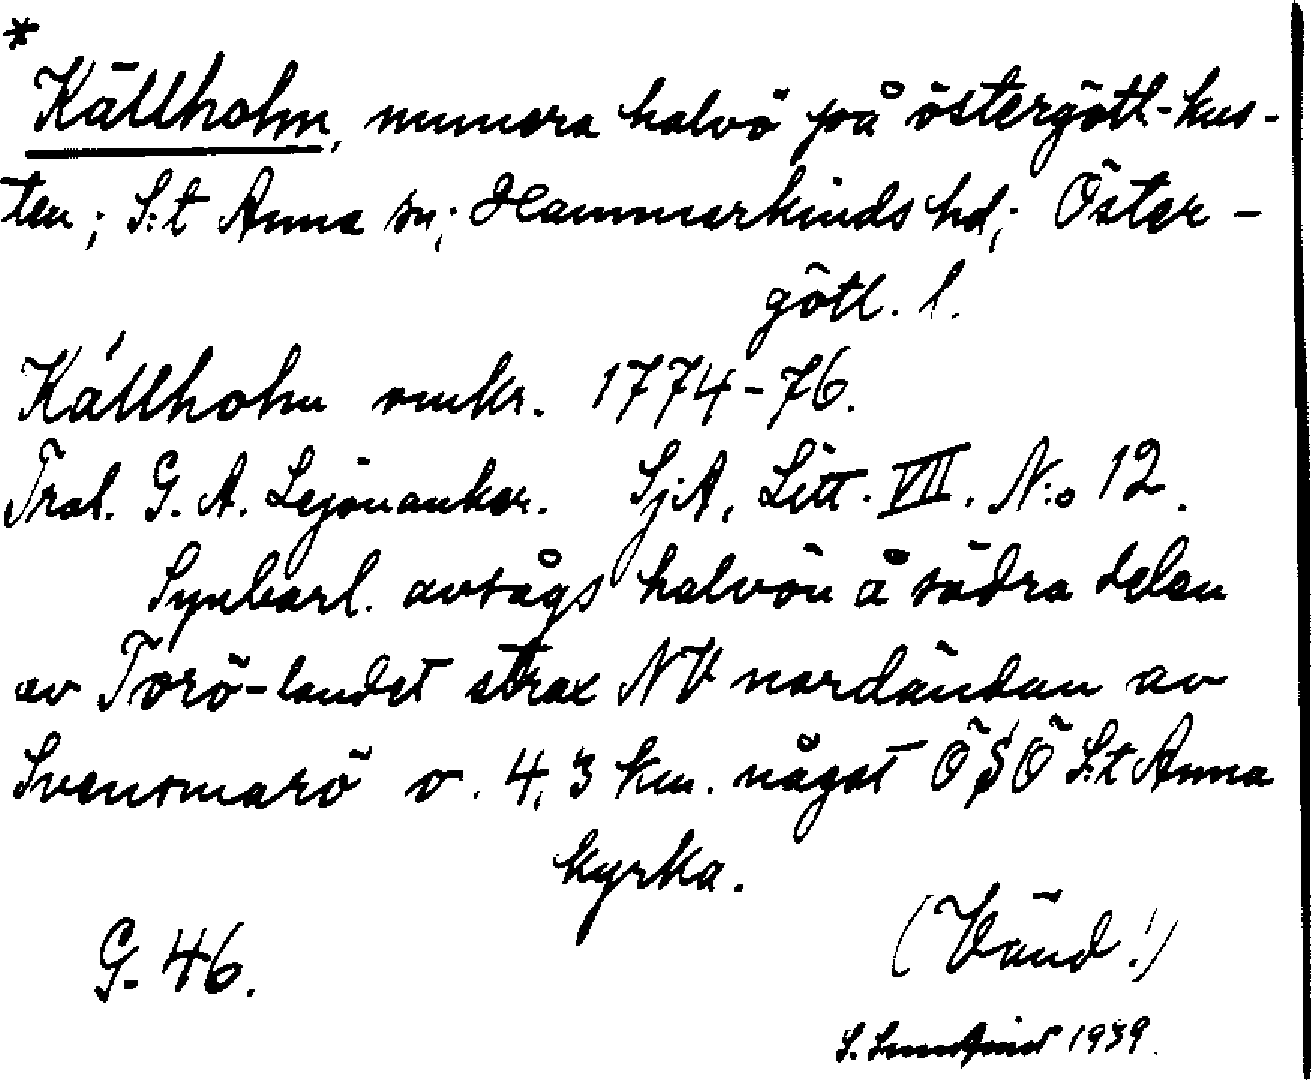 *
Källholm, numera halvö på östergötl-kus-
ten; S:t Anna sn; Hammarkinds hd; Öster-
götl. l.
Källholm omkr. 1774-76.
Trol. G. A. Lejonanker. SjA, Litt. VII. N:o 12.
Synbarl. avsågs halvön å södra delen
av Torö-landet strax NV nordändan av
Svensmarö o. 4,3 km. något ÖSÖ S:t Anna
kyrka.
G. 46.
(Vänd!)
S. 1939.